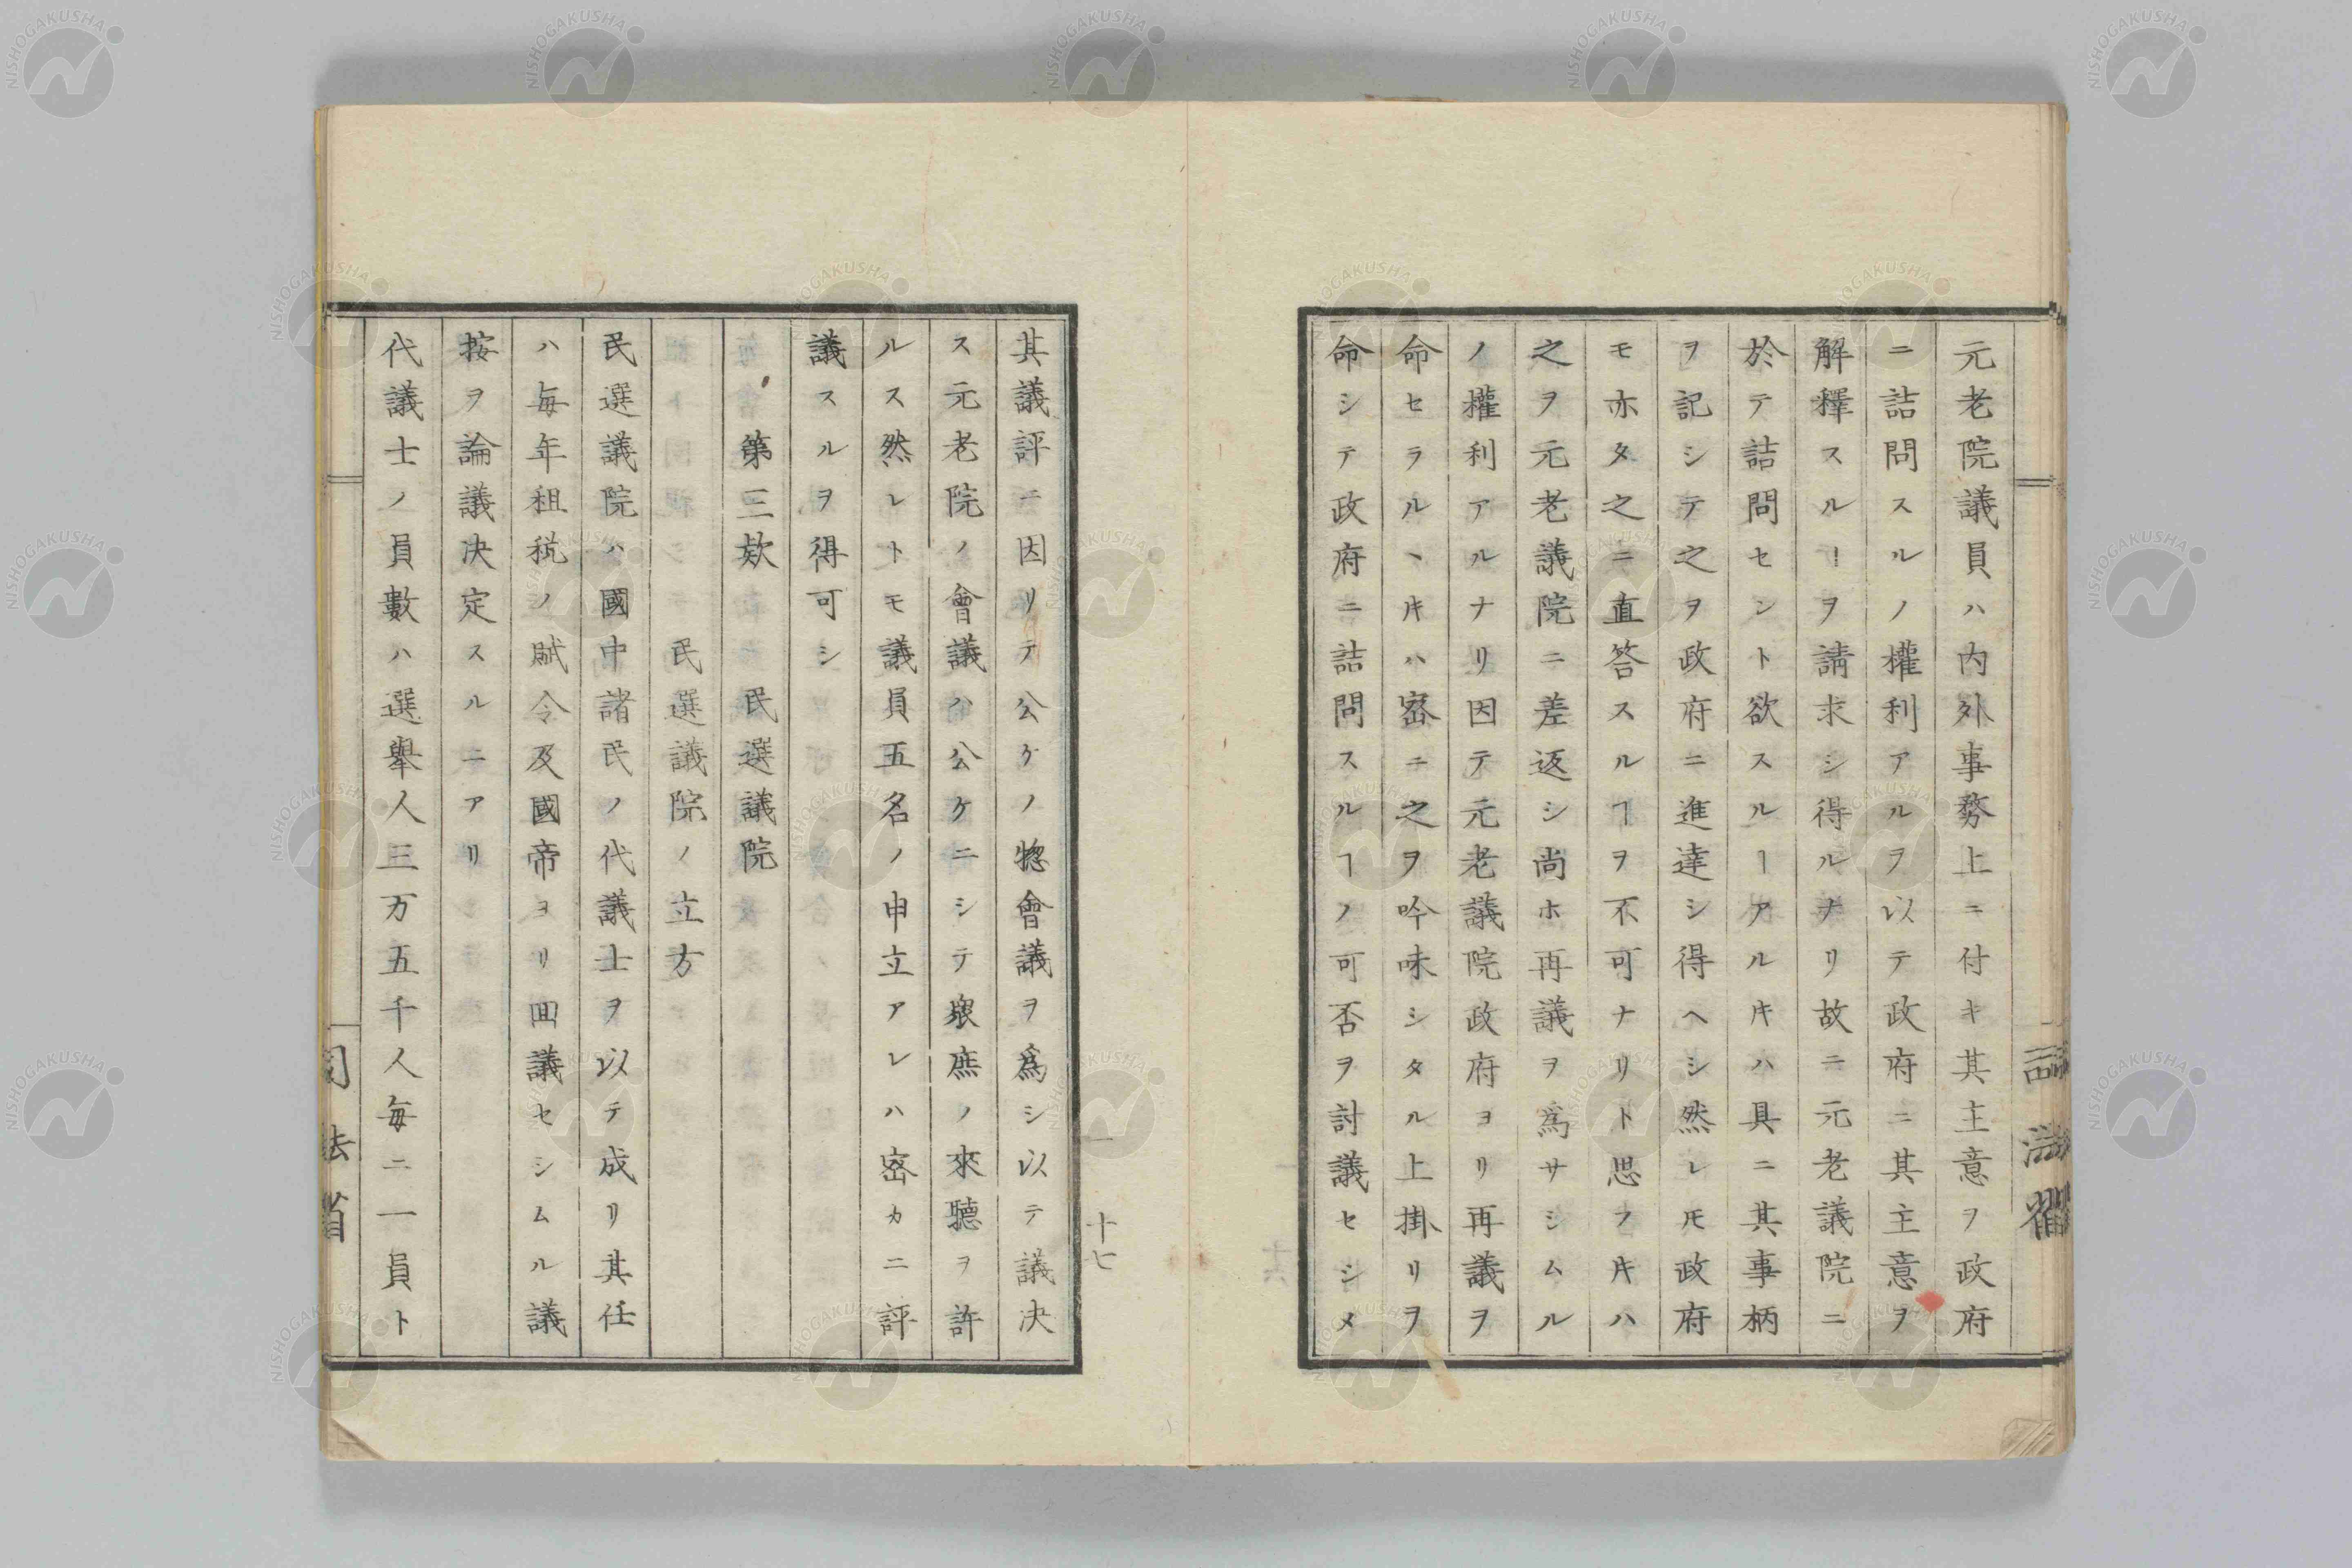 元老院議員ハ内外事務上ニ付キ其主意ヲ政府
ニ詰問スルノ權利アルヲ以テ政府ニ其主意ヲ
解釋スルヿヲ請求シ得ルナリ故ニ元老議院ニ
於テ詰問セント欲スルヿアルキハ具ニ其事柄
ヲ記シテ之ヲ政府ニ進達シ得ヘシ然レ𪜈政府
モ亦タ之ニ直答スルヿヲ不可ナリト思フキハ
之ヲ元老議院ニ差返シ尚ホ再議ヲ爲サシムル
ノ權利アルナリ因テ元老議院政府ヨリ再議ヲ
命セラルヽキハ密ニ之ヲ吟味シタル上掛リヲ
命シテ政府ニ詰問スルヿノ可否ヲ討議セシメ
其議評ニ因リテ公ケノ惣會議ヲ爲シ以テ議决
ス元老院ノ會議ハ公ケニシテ衆庶ノ來聽ヲ許
ルス然レトモ議員五名ノ申立アレハ密カニ評
議スルヲ得可シ
第三欵 民選議院
民選議院ノ立方
民選議院ハ國中諸民ノ代議士ヲ以テ成リ其任
ハ毎年租税ノ賦令及國帝ヨリ回議セシムル議
按ヲ論議决定スルニアリ
代議士ノ員數ハ選舉人三万五千人毎ニ一員ト
十七
司法省
NISHOGAKUSHA